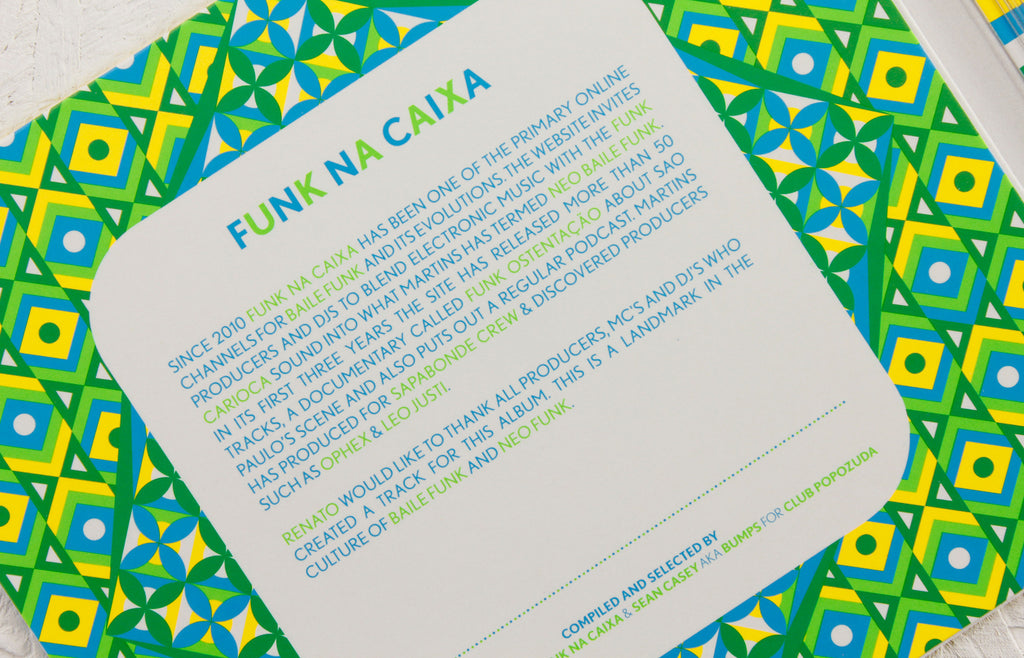 FUNK NA CAIXA
SINCE 2010 FUNK NA CAIXA HAS BEEN ONE OF THE PRIMARY ONLINE
CHANNELS FOR BAILE FUNK AND ITS EVOLUTIONS. THE WEBSITE INVITES
PRODUCERS AND DJS TO BLEND ELECTRONIC MUSIC WITH THE FUNK
CARIOCA SOUND INTO WHAT MARTINS HAS TERMED NEO BAILE FUNK.
IN ITS FIRST THREE YEARS THE SITE HAS RELEASED MORE THAN 50
TRACKS, A DOCUMENTARY CALLED FUNK OSTENTAÇÃO ABOUT SAO
PAULO'S SCENE AND ALSO PUTS OUT A REGULAR PODCAST. MARTINS
HAS PRODUCED FOR SAPABONDE CREW & DISCOVERED PRODUCERS
SUCH AS OPHEX & LEO JUSTI.
RENATO WOULD LIKE TO THANK ALL PRODUCERS, MC'S AND DJ'S WHO
CREATED A TRACK FOR THIS ALBUM. THIS IS A LANDMARK IN THE
CULTURE OF BAILE FUNK AND NEO FUNK.
COMPILED AND SELECTED BY
NK NA CAIXA & SEAN CASEY AKA BUMPS FOR CLUB POPOZUDA